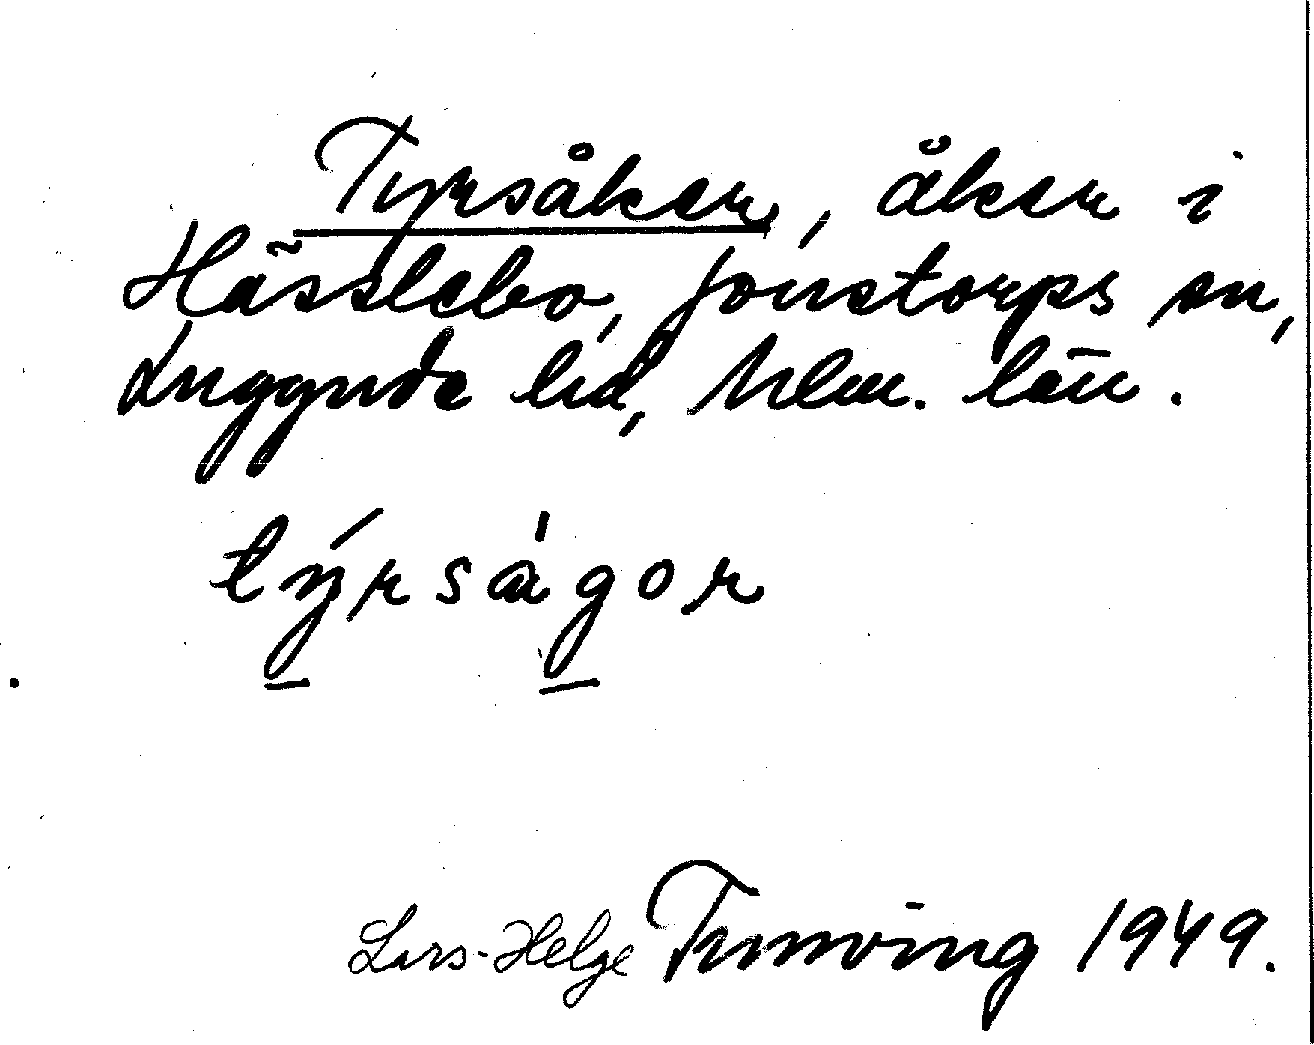 Tyrsåker, åker i
Hässlebo, Jonstorps sn,
Luggude hd, Mlm. län.
týrsågor
Lars-Helge Trunving 1949.